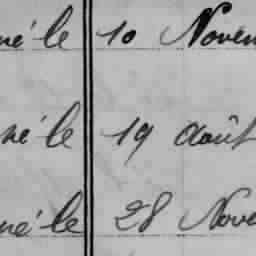 né le 10 Novem
né le 19 août
né le 28 Nove